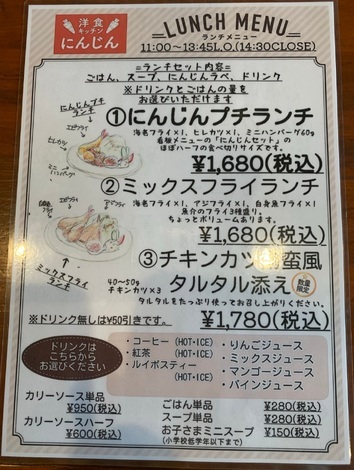 洋食
キッチン
にんじん
LUNCH MENU
ランチメニュー
11:00〜13:45L.O.(14:30CLOSE)
=ランチセット内容=
ごはん、スープ、にんじんラペ、ドリンク
※ドリンクとごはんの量を
お選びいただけます
にんじんプチ
ランチ
エビフライ
ヒレカツ
ミニハンバーグ
①にんじんプチランチ
海老フライ×1、ヒレカツ×1、ミニハンバーグ60g
看板メニューの「にんじんセット」の
ほぼハーフの食べ切りサイズです。
¥1,680(税込)
②ミックスフライランチ
海老フライ×1、アジフライ×1、白身魚フライ×1
魚介のフライ3種盛り。
ちょっとボリュームあります。
¥1,680(税込)
エビフライ
アジフライ
ミックスフライ
ランチ
③チキンカツ南蛮風
タルタル添え
数量
限定
40〜50g
チキンカツ×3
タルタルをたっぷり使ってお召し上がりください。
¥1,780(税込)
※ドリンク無しは¥50引きです。
ドリンクは
こちらから
お選びください
・コーヒー(HOT・ICE)
・紅茶 (HOT・ICE)
・ルイボスティー
(HOT・ICE)
・りんごジュース
・ミックスジュース
・マンゴージュース
・パインジュース
カリーソース単品
¥950(税込)
カリーソースハーフ
¥600(税込)
ごはん単品 ¥280(税込)
スープ単品 ¥280(税込)
お子さまミニスープ ¥150(税込)
(小学校低学年以下まで)